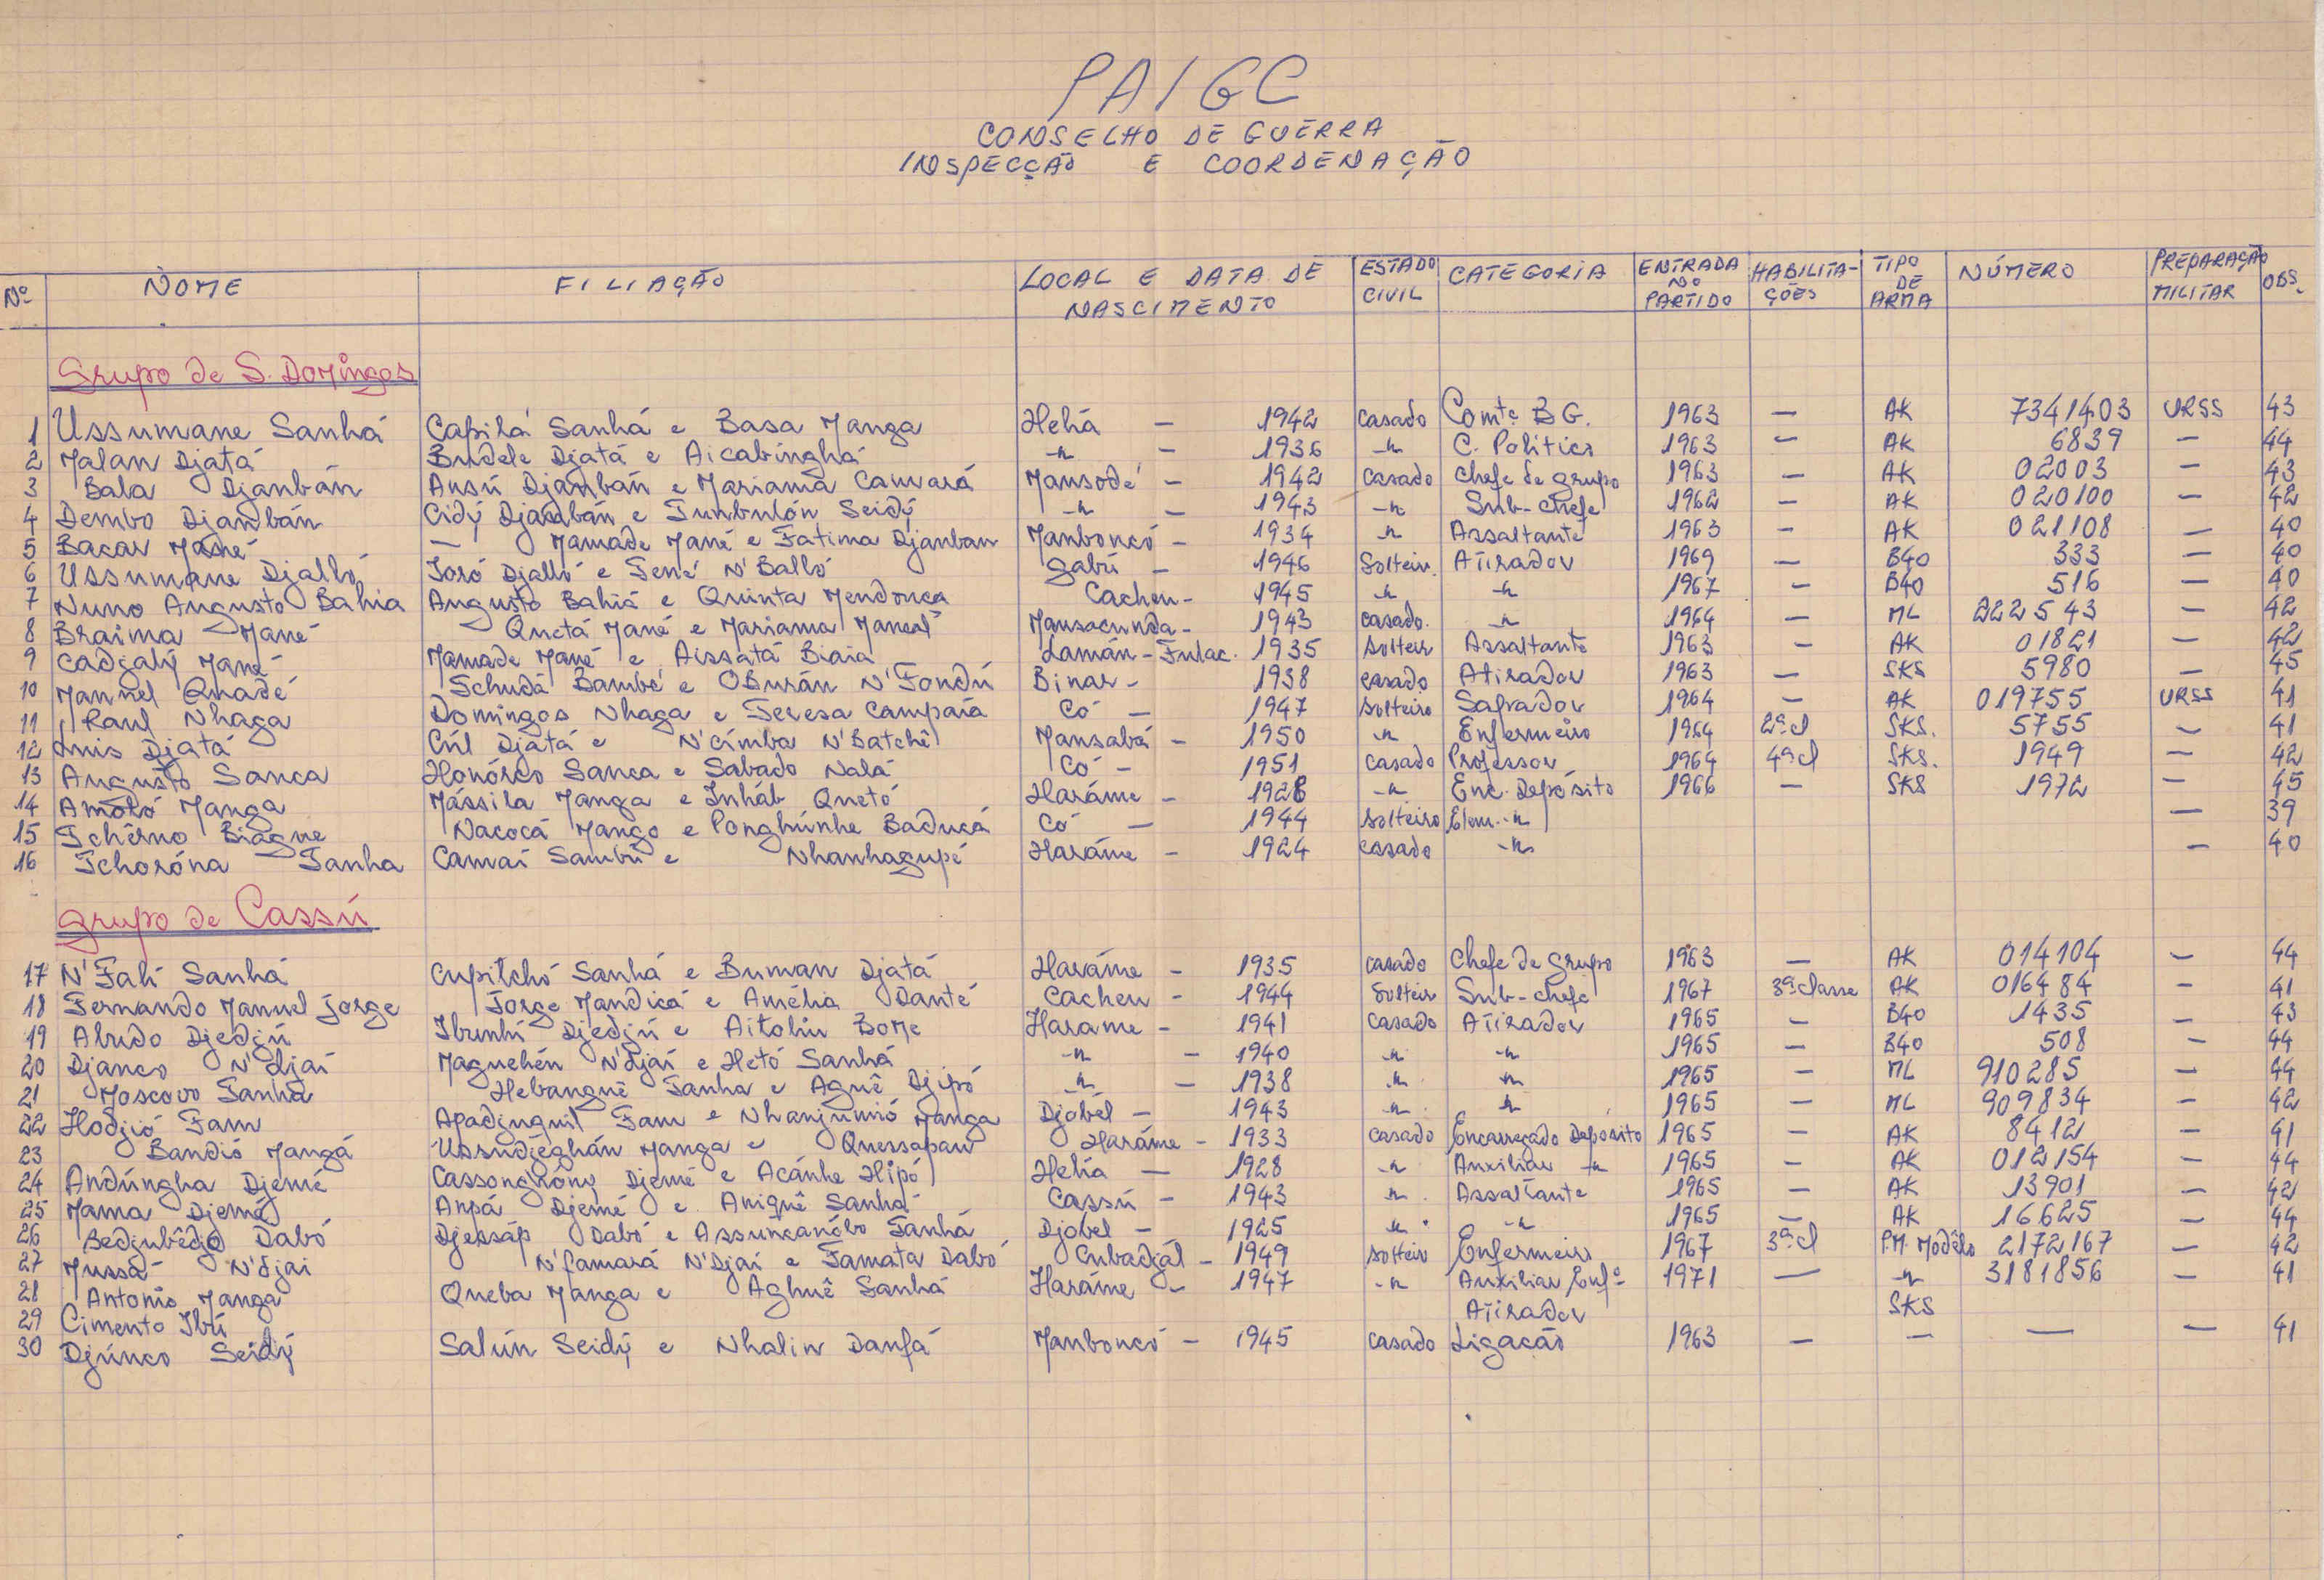 PAIGC
CONSELHO DE GUERRA
INSPECÇÃO E COORDENAÇÃO
Nº NOME FILIAÇÃO LOCAL E DATA DE NASCIMENTO ESTADO CIVIL CATEGORIA ENTRADA NO PARTIDO HABILITA-ÇÕES TIPO DE ARMA NÚMERO PREPARAÇÃO MILITAR OBS.
Grupo de S. Domingos
1 Ussumane Sanhá Capilá Sanhá e Basa Manga Hehá — 1942 casado Comte BG. 1963 — AK 7341403 URSS 43
2 Malan Djatá Budele Djatá e Aicabinghá -"- — 1936 -"- C. Politico 1963 — AK 6839 — 44
3 Bala Djanbán Ansú Djanbán e Mariama Camará Mansodé — 1942 casado chefe de grupo 1963 — AK 02003 — 43
4 Dembo Djanbán Cidý Djanbán e Tunbulón Seidý -"- — 1943 -"- Sub-chefe 1962 — AK 020100 — 42
5 Bacar Mané — Mamade Mané e Fatima Djanban Manboncó — 1934 -"- Assaltante 1963 — AK 021108 — 40
6 Ussumane Djalló Joró Djalló e Tené N'Balló Gabú — 1946 Solteir. Atirador 1969 — B40 333 — 40
7 Nuno Augusto Bahia Augusto Bahiá e Quinta Mendonca Cacheu — 1945 -"- -"- 1967 — B40 516 — 40
8 Braima Mané Quetá Mané e Mariama Maneal Mansacunda — 1943 casado. -"- 1964 — ML 222543 — 42
9 Cadjalý Mané Mamade Mané e Aissatá Biaia Lamán-Fulac. 1935 solteir Assaltante 1963 — AK 01821 — 42
10 Manuel Quadé Schudá Bambé e OBurán N'Fondú Binar — 1938 casado Atirador 1963 — SKS 5980 — 45
11 Raul Nhaga Domingos Nhaga e Teresa Campará Có — 1947 solteiro Sapador 1964 — AK 019755 URSS 41
12 Luis Djatá Cúl Djatá e N'címba N'Batchê Mansabá — 1950 -"- Enfermeiro 1964 2ª cl SKS. 5755 — 41
13 Augusto Sanca Honórco Sanca e Sabado Nalá Có — 1951 casado Professor 1964 4ª cl SKS. 1949 — 42
14 Amoló Manga Mássila Manga e Inháb Quetó Haráme — 1928 -"- Enc. Depósito 1966 — SKS 1972 — 45
15 Tchêrno Biágne Nacocá Mango e Ponghúnhe Baducá Có — 1944 solteiro Elem. -"- — 39
16 Tchoróna Tanha Camaí Sambú e Nhanhagupé Haráme — 1924 casado -"- — 40
Grupo de Cassú
17 N'Falí Sanhá Cupitchó Sanhá e Buman Djatá Haráme — 1935 casado Chefe de Grupo 1963 — AK 014104 — 44
18 Fernando Manuel Jorge Jorge Mandicá e Amélia Danté Cacheu — 1944 solteir Sub-chefe 1967 3ª classe AK 016484 — 41
19 Aludo Djedjú Ibunhí Djedjú e Aitolin Bome Harame — 1941 casado Atirador 1965 — B40 1435 — 43
20 Djanco N'djaí Maguehén N'djaí e Hetó Sanhá -"- — 1940 -"- -"- 1965 — B40 508 — 44
21 Moscovo Tanhá Hebanguê Tanha e Aguê Djipó -"- — 1938 -"- -"- 1965 — ML 910285 — 44
22 Hodjió Fam Apadjuguil Fam e Nhanjumió Manga Djobél — 1943 -"- -"- 1965 — ML 909834 — 42
23 Bandió Mangá Ussudjeghán Manga e Quessapau Haráme — 1933 casado Encarregado Deposito 1965 — AK 8412 — 41
24 Andúngha Djemé Cassonghóng Djemé e Acánhe Hipó Hehá — 1928 -"- Auxiliar -"- 1965 — AK 012154 — 44
25 Mama Djemé Anpá Djemé e Aniquê Sanhá Cassú — 1943 -"- Assaltante 1965 — AK 13901 — 42
26 Bedjubêdjo Dabó Djessáp Dabó e Assuncanóbo Tanhá Djobel — 1925 -"- -"- 1965 — AK 16625 — 44
27 Mussá N'djai N'famará N'Djaí e Famata Dabó Cubadjál — 1949 solteir Enfermeir 1967 3ª cl P.M. Modêlo 2172167 — 42
28 Antonio Manga Queba Manga e Aghuê Sanhá Haráme — 1947 -"- Auxiliar Enfº 1971 — -"- 3181856 — 41
29 Cimento Ibú Atirador SKS
30 Djúnco Seidý Salún Seidý e Nhalin Danfá Manboncó — 1945 casado Ligacão 1963 — — — — 41